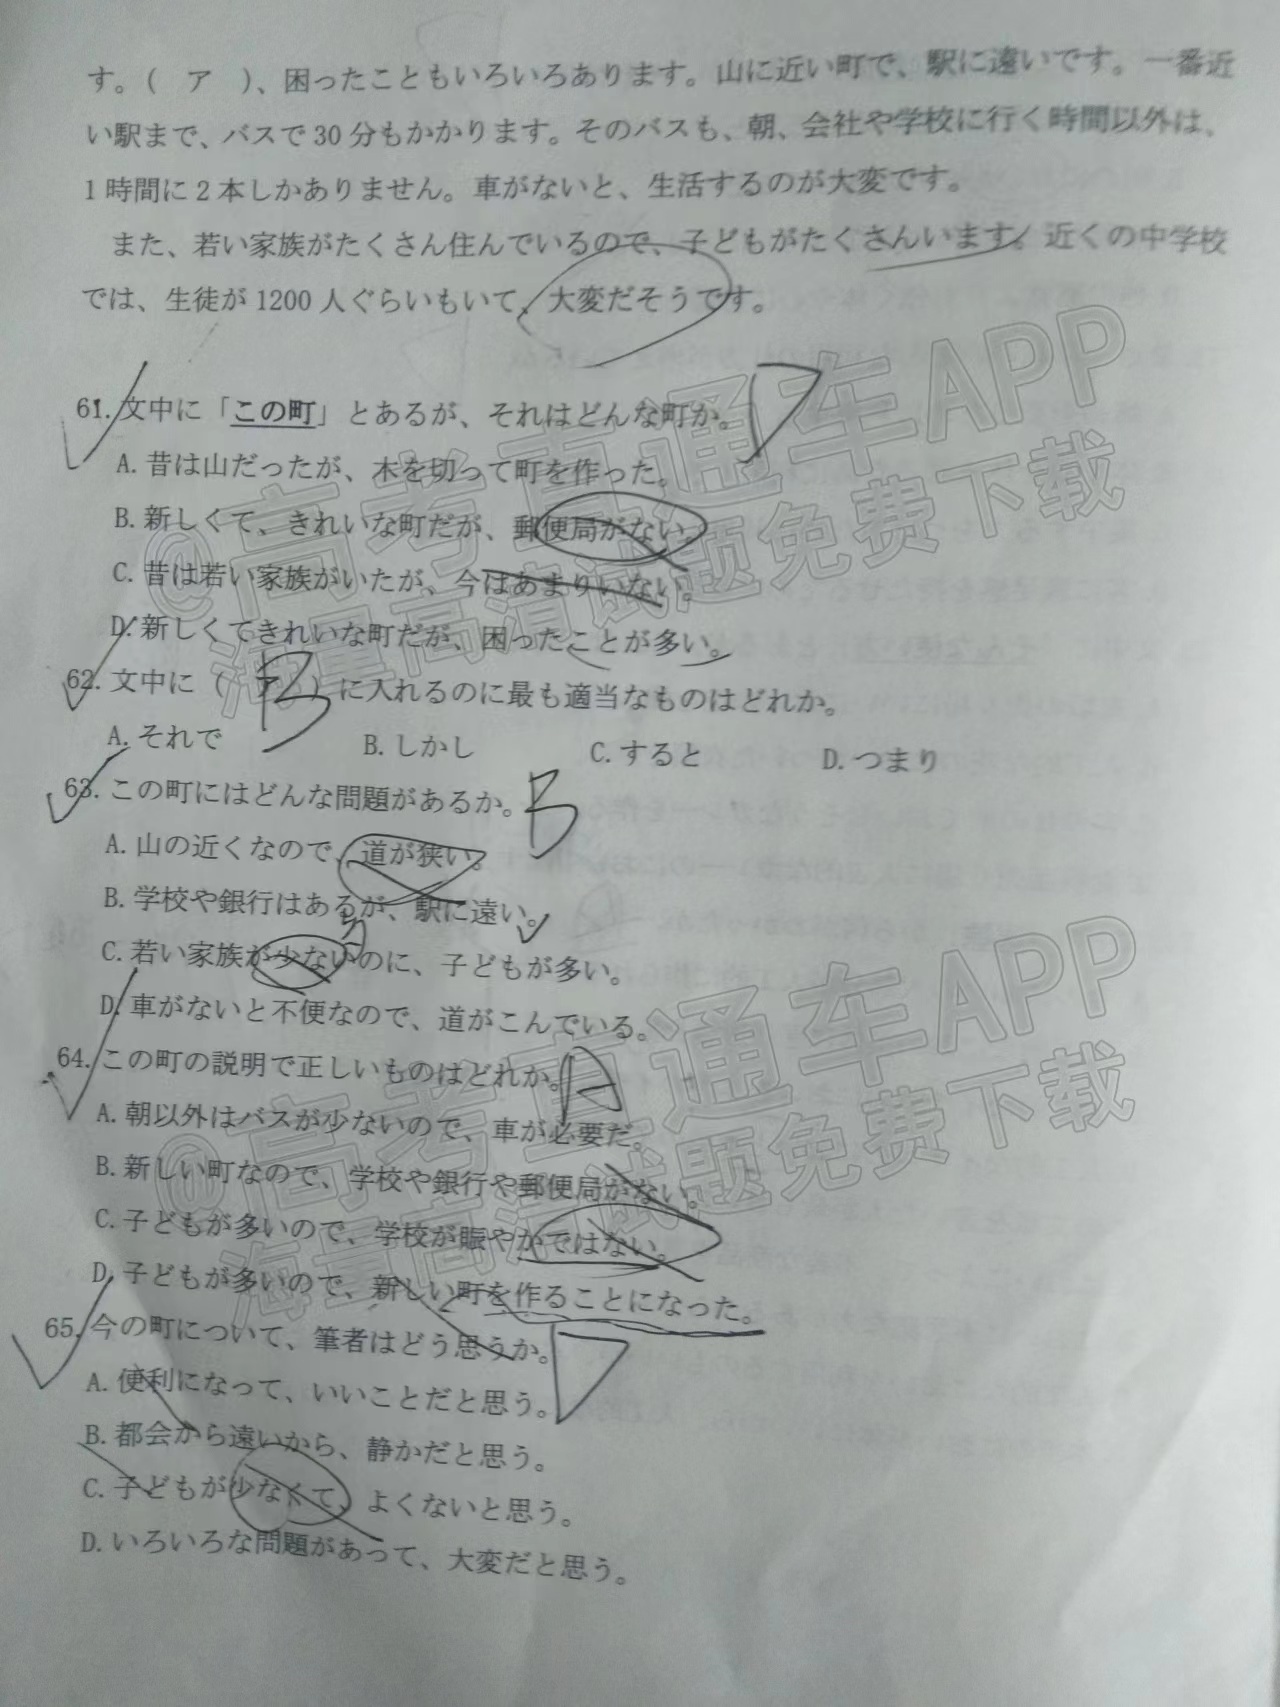 す。（　ア　）、困ったこともいろいろあります。山に近い町で、駅に遠いです。一番近
い駅まで、バスで30分もかかります。そのバスも、朝、会社や学校に行く時間以外は、
1時間に2本しかありません。車がないと、生活するのが大変です。
また、若い家族がたくさん住んでいるので、子どもがたくさんいます。近くの中学校
では、生徒が1200人ぐらいもいて、大変だそうです。
61. 文中に「この町」とあるが、それはどんな町か。 D
A. 昔は山だったが、木を切って町を作った。
B. 新しくて、きれいな町だが、郵便局がない。
C. 昔は若い家族がいたが、今はあまりいない。
D. 新しくてきれいな町だが、困ったことが多い。
62. 文中に（　ア　）に入れるのに最も適当なものはどれか。 B
A. それで B. しかし C. すると D. つまり
63. この町にはどんな問題があるか。 B
A. 山の近くなので、道が狭い。
B. 学校や銀行はあるが、駅に遠い。
C. 若い家族が少ないのに、子どもが多い。
D. 車がないと不便なので、道がこんでいる。
64. この町の説明で正しいものはどれか。 A
A. 朝以外はバスが少ないので、車が必要だ。
B. 新しい町なので、学校や銀行や郵便局がない。
C. 子どもが多いので、学校が賑やかではない。
D. 子どもが多いので、新しい町を作ることになった。
65. 今の町について、筆者はどう思うか。 D
A. 便利になって、いいことだと思う。
B. 都会から遠いから、静かだと思う。
C. 子どもが少なくて、よくないと思う。
D. いろいろな問題があって、大変だと思う。
@高考直通车APP
海量高清试题免费下载
@高考直通车APP
海量高清试题免费下载